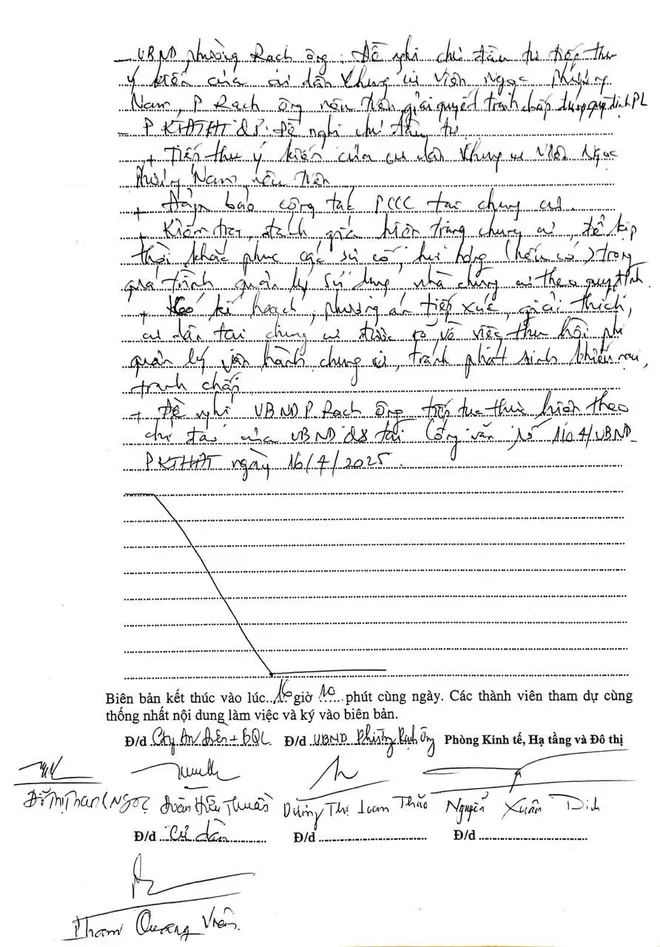 - UBND phường Rạch Ông: Đề nghị chủ đầu tư tiếp thu
ý kiến của cư dân chung cư Viên Ngọc Phương
Nam, P Rạch Ông nêu trên, giải quyết tranh chấp đúng quy định PL
- P KTHTĐT Q8: Đề nghị chủ đầu tư
+ Tiếp thu ý kiến của cư dân chung cư Viên Ngọc
Phương Nam nêu trên
+ Đảm bảo công tác PCCC tại chung cư.
+ Kiểm tra, đánh giá hiện trạng chung cư, để kịp
thời khắc phục các sự cố, hư hỏng (nếu có) trong
quá trình quản lý sử dụng nhà chung cư theo quy định.
+ Có kế hoạch, phương án tiếp xúc, giải thích,
cư dân tại chung cư được rõ về việc thu hồi phí
quản lý vận hành chung cư, tránh phát sinh khiếu nại,
tranh chấp
+ Đề nghị UBND P. Rạch Ông tiếp tục thực hiện theo
chỉ đạo của UBND Q8 tại Công văn số 1104/UBND-
PKTHTĐT ngày 16/4/2025.
Biên bản kết thúc vào lúc 16 giờ 10 phút cùng ngày. Các thành viên tham dự cùng
thống nhất nội dung làm việc và ký vào biên bản.
Đ/d Cty An Điền + BQL Đ/d UBND Phường Rạch Ông Phòng Kinh tế, Hạ tầng và Đô thị
Đỗ Thị Thanh Ngọc Đoàn Hữu Thuần Dương Thị Loan Thảo Nguyễn Xuân Dinh
Đ/d Cư dân Đ/d Đ/d
Phạm Quang Viên